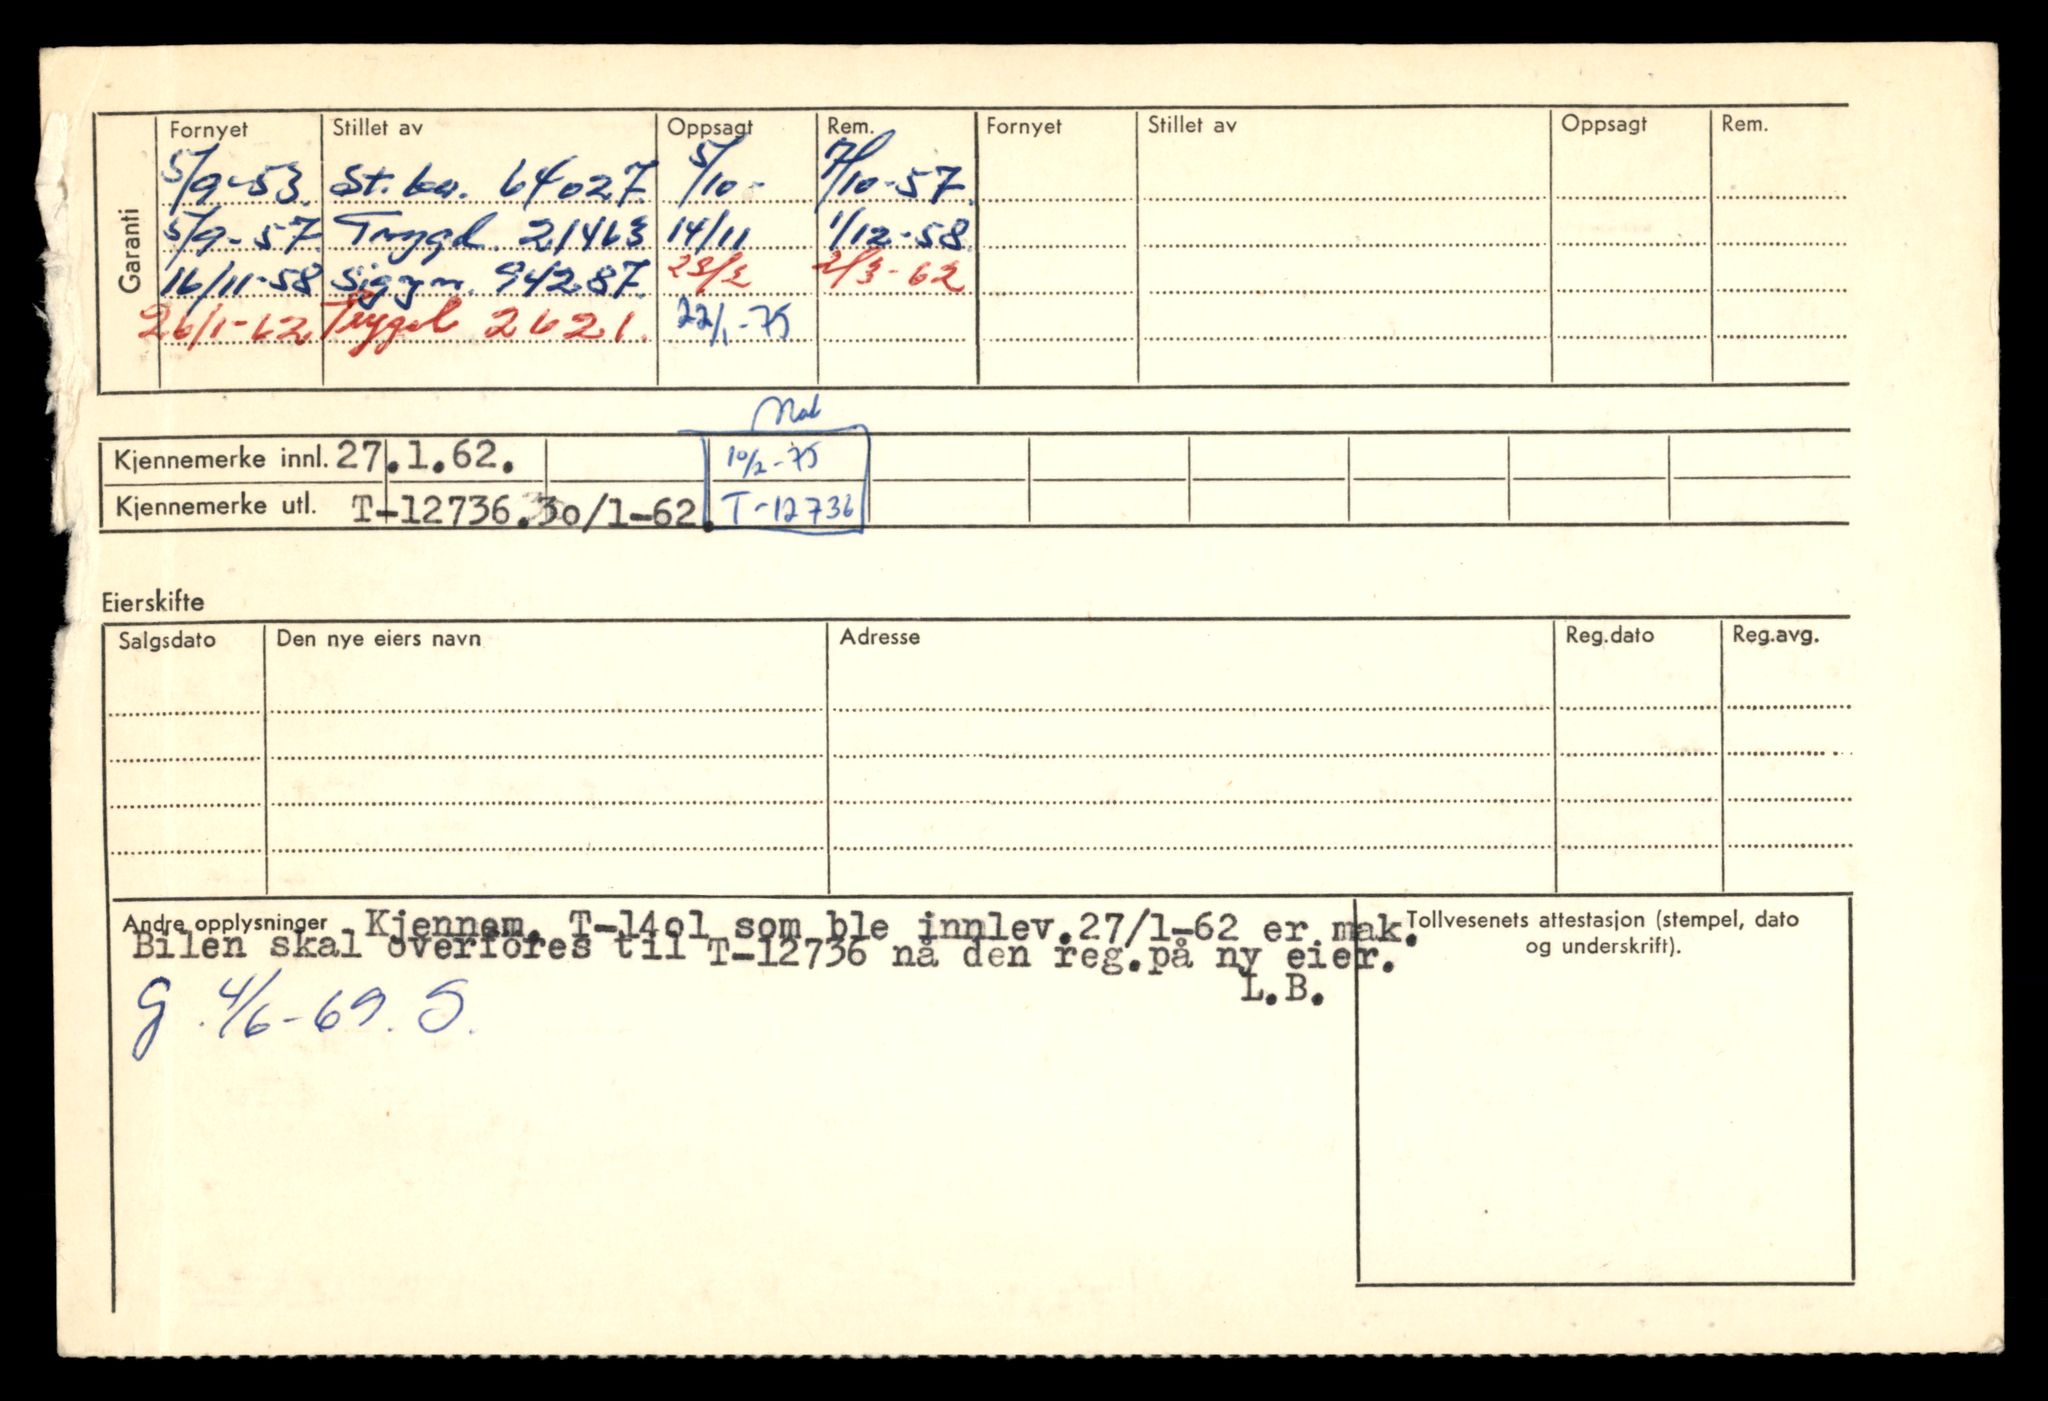 Garanti
Fornyet Stillet av Oppsagt Rem. Fornyet Stillet av Oppsagt Rem.
5/9-53. St. 64027. 5/10- 7/10-57.
5/9-57. Trygd. 21463 14/11 1/12-58
16/11-58 Sigyn. 94287. 23/2 2/3-62
26/1-62 Trygd 2621. 22/1-75
Kjennemerke innl. 27.1.62. 10/2-75
Kjennemerke utl. T-12736.30/1-62. T-12736
Eierskifte
Salgsdato Den nye eiers navn Adresse Reg.dato Reg.avg.
Andre opplysninger Kjennem. T-14o1 som ble innlev.27/1-62 er mak.
Bilen skal overføres til T-12736 nå den reg.på ny eier.
L.B.
G. 4/6-69. S.
Tollvesenets attestasjon (stempel, dato
og underskrift).